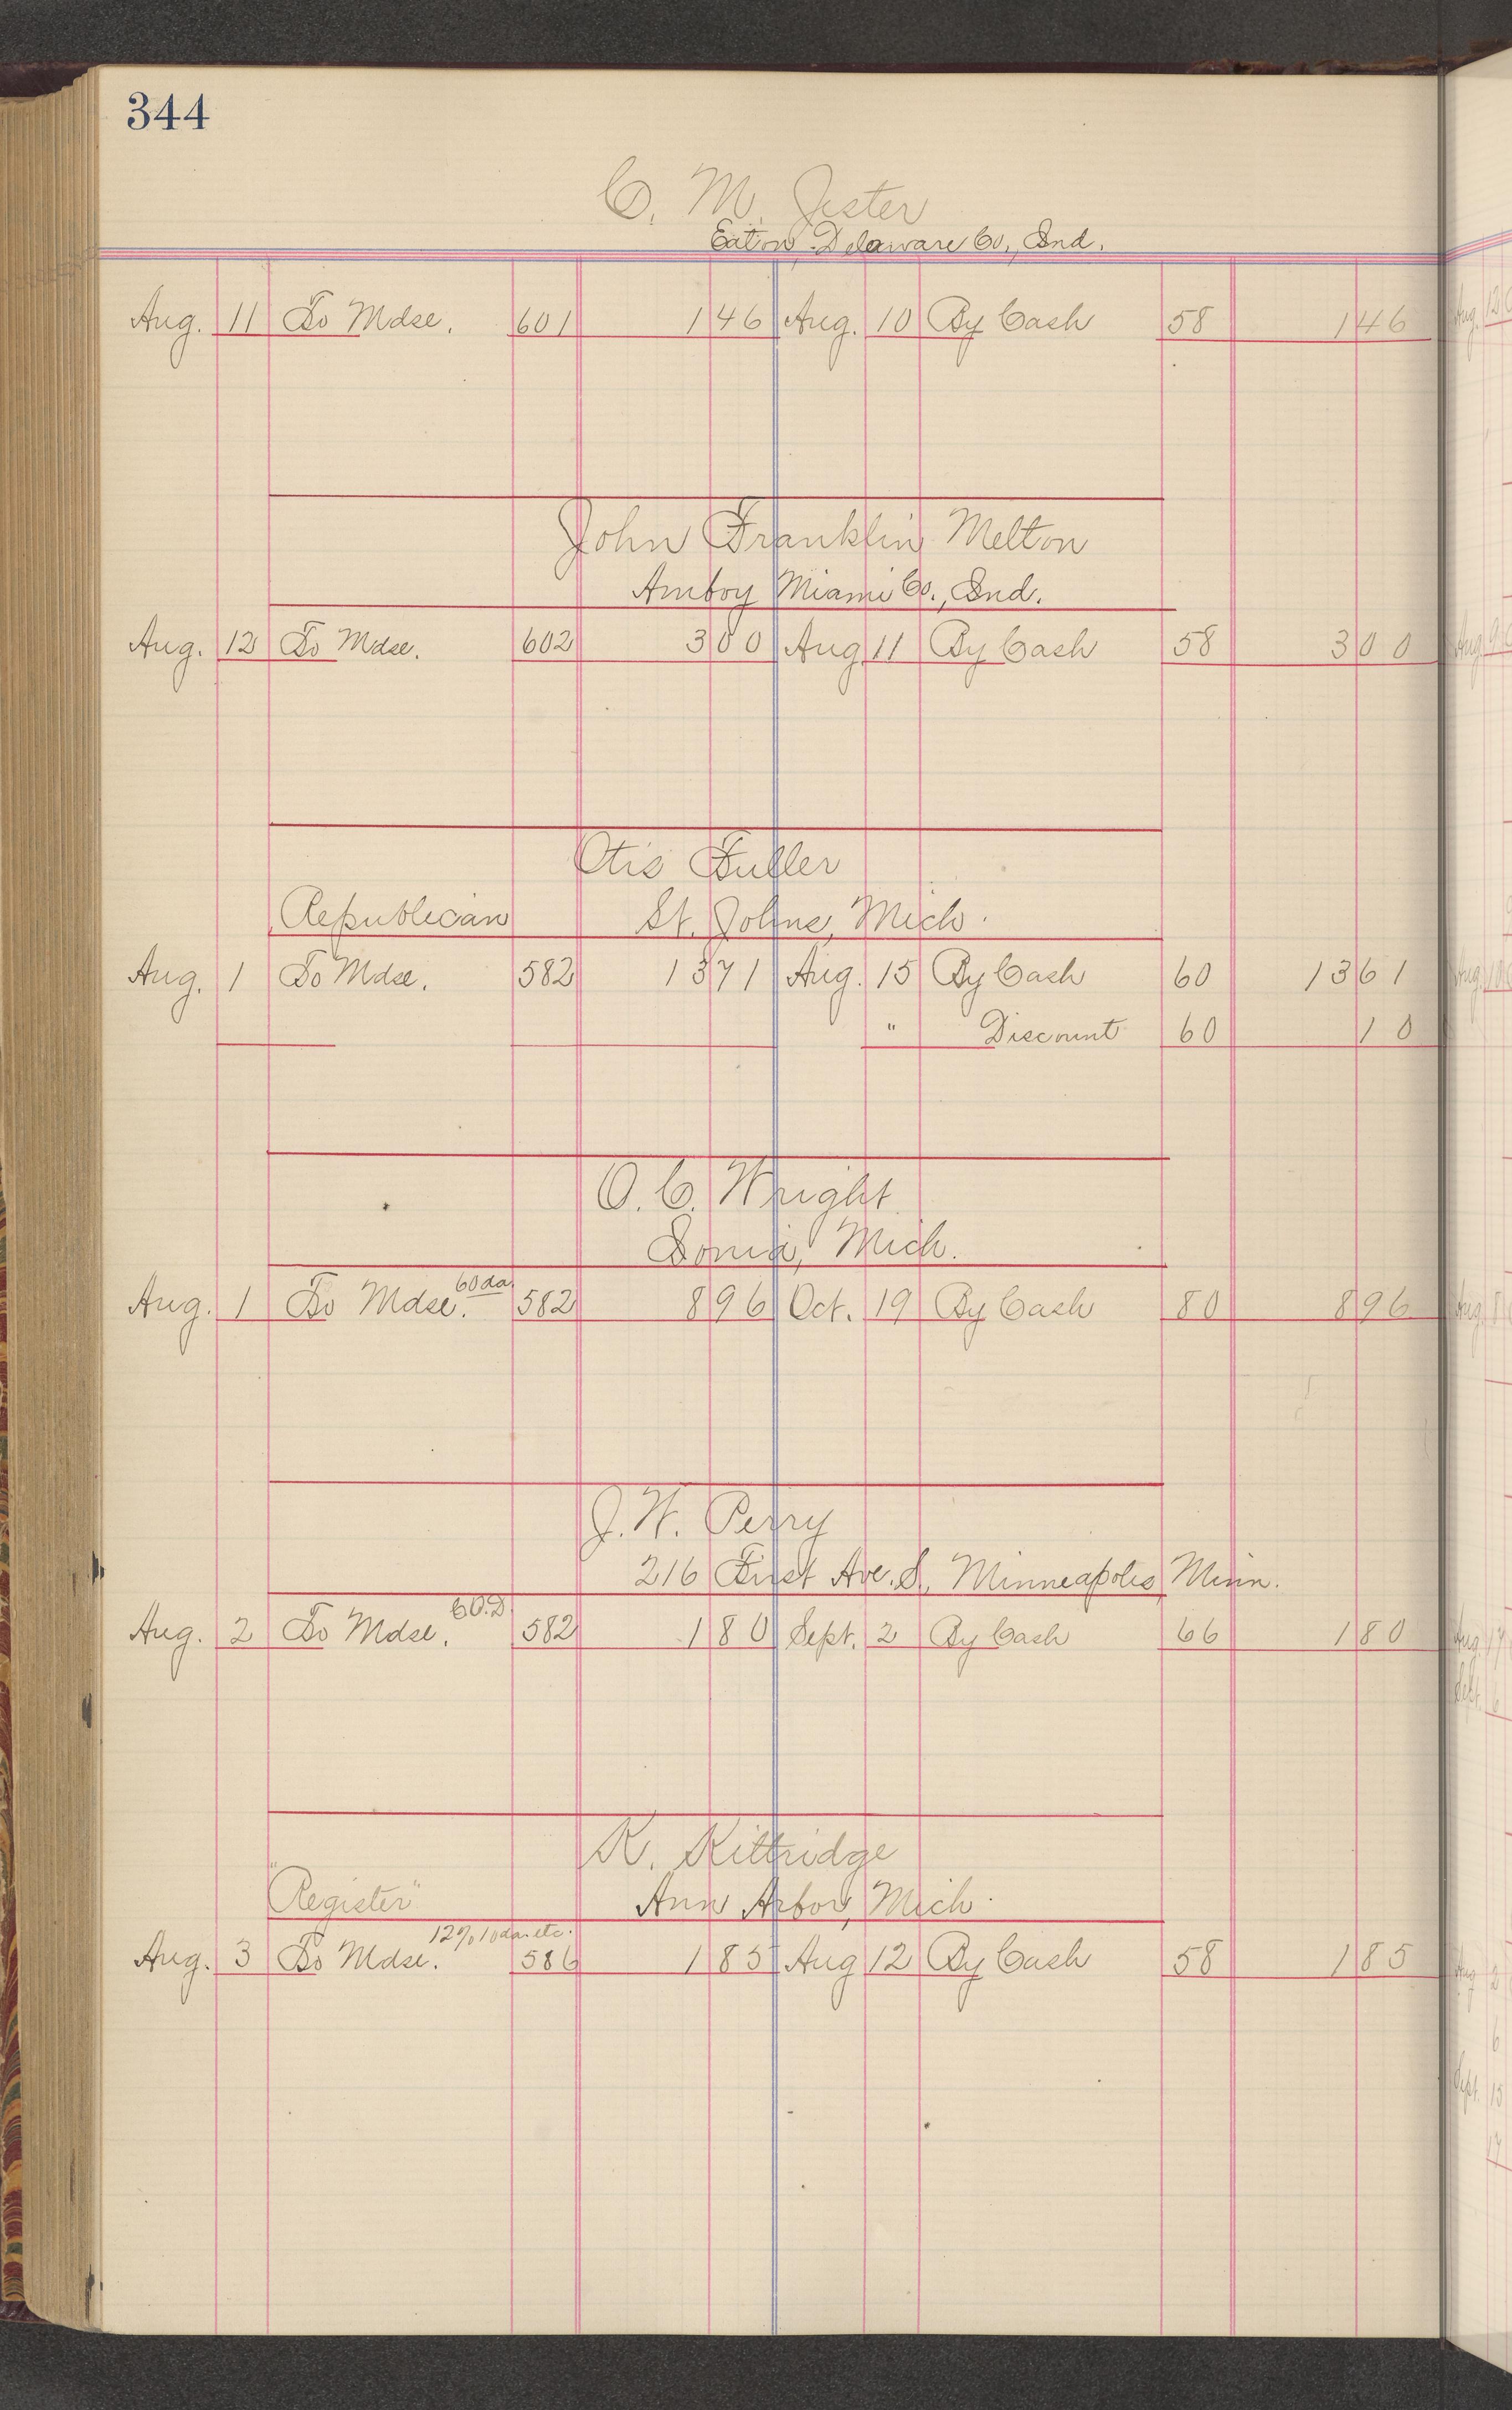 344
C. M. Jester
Eaton, Delaware Co., Ind.
Aug. 11 To Mdse. 601 1 46 Aug. 10 By Cash 58 1 46
John Franklin Melton
Amboy Miami Co., Ind.
Aug. 12 To Mdse. 602 3 00 Aug 11 By Cash 58 3 00
Otis Fuller
Republican St. Johns, Mich.
Aug. 1 To Mdse. 582 13 71 Aug. 15 By Cash 60 13 61
" Discount 60 10
O. C. Wright
Ionia, Mich.
Aug. 1 To Mdse. 60 da. 582 8 96 Oct. 19 By Cash 80 8 96
J. W. Perry
216 First Ave. S., Minneapolis, Minn.
Aug. 2 To Mdse. 60 D 582 1 80 Sept. 2 By Cash 66 1 80
K. Kittridge
"Register" Ann Arbor, Mich.
Aug. 3 To Mdse. 12% 10 da. etc. 586 1 85 Aug 12 By Cash 58 1 85